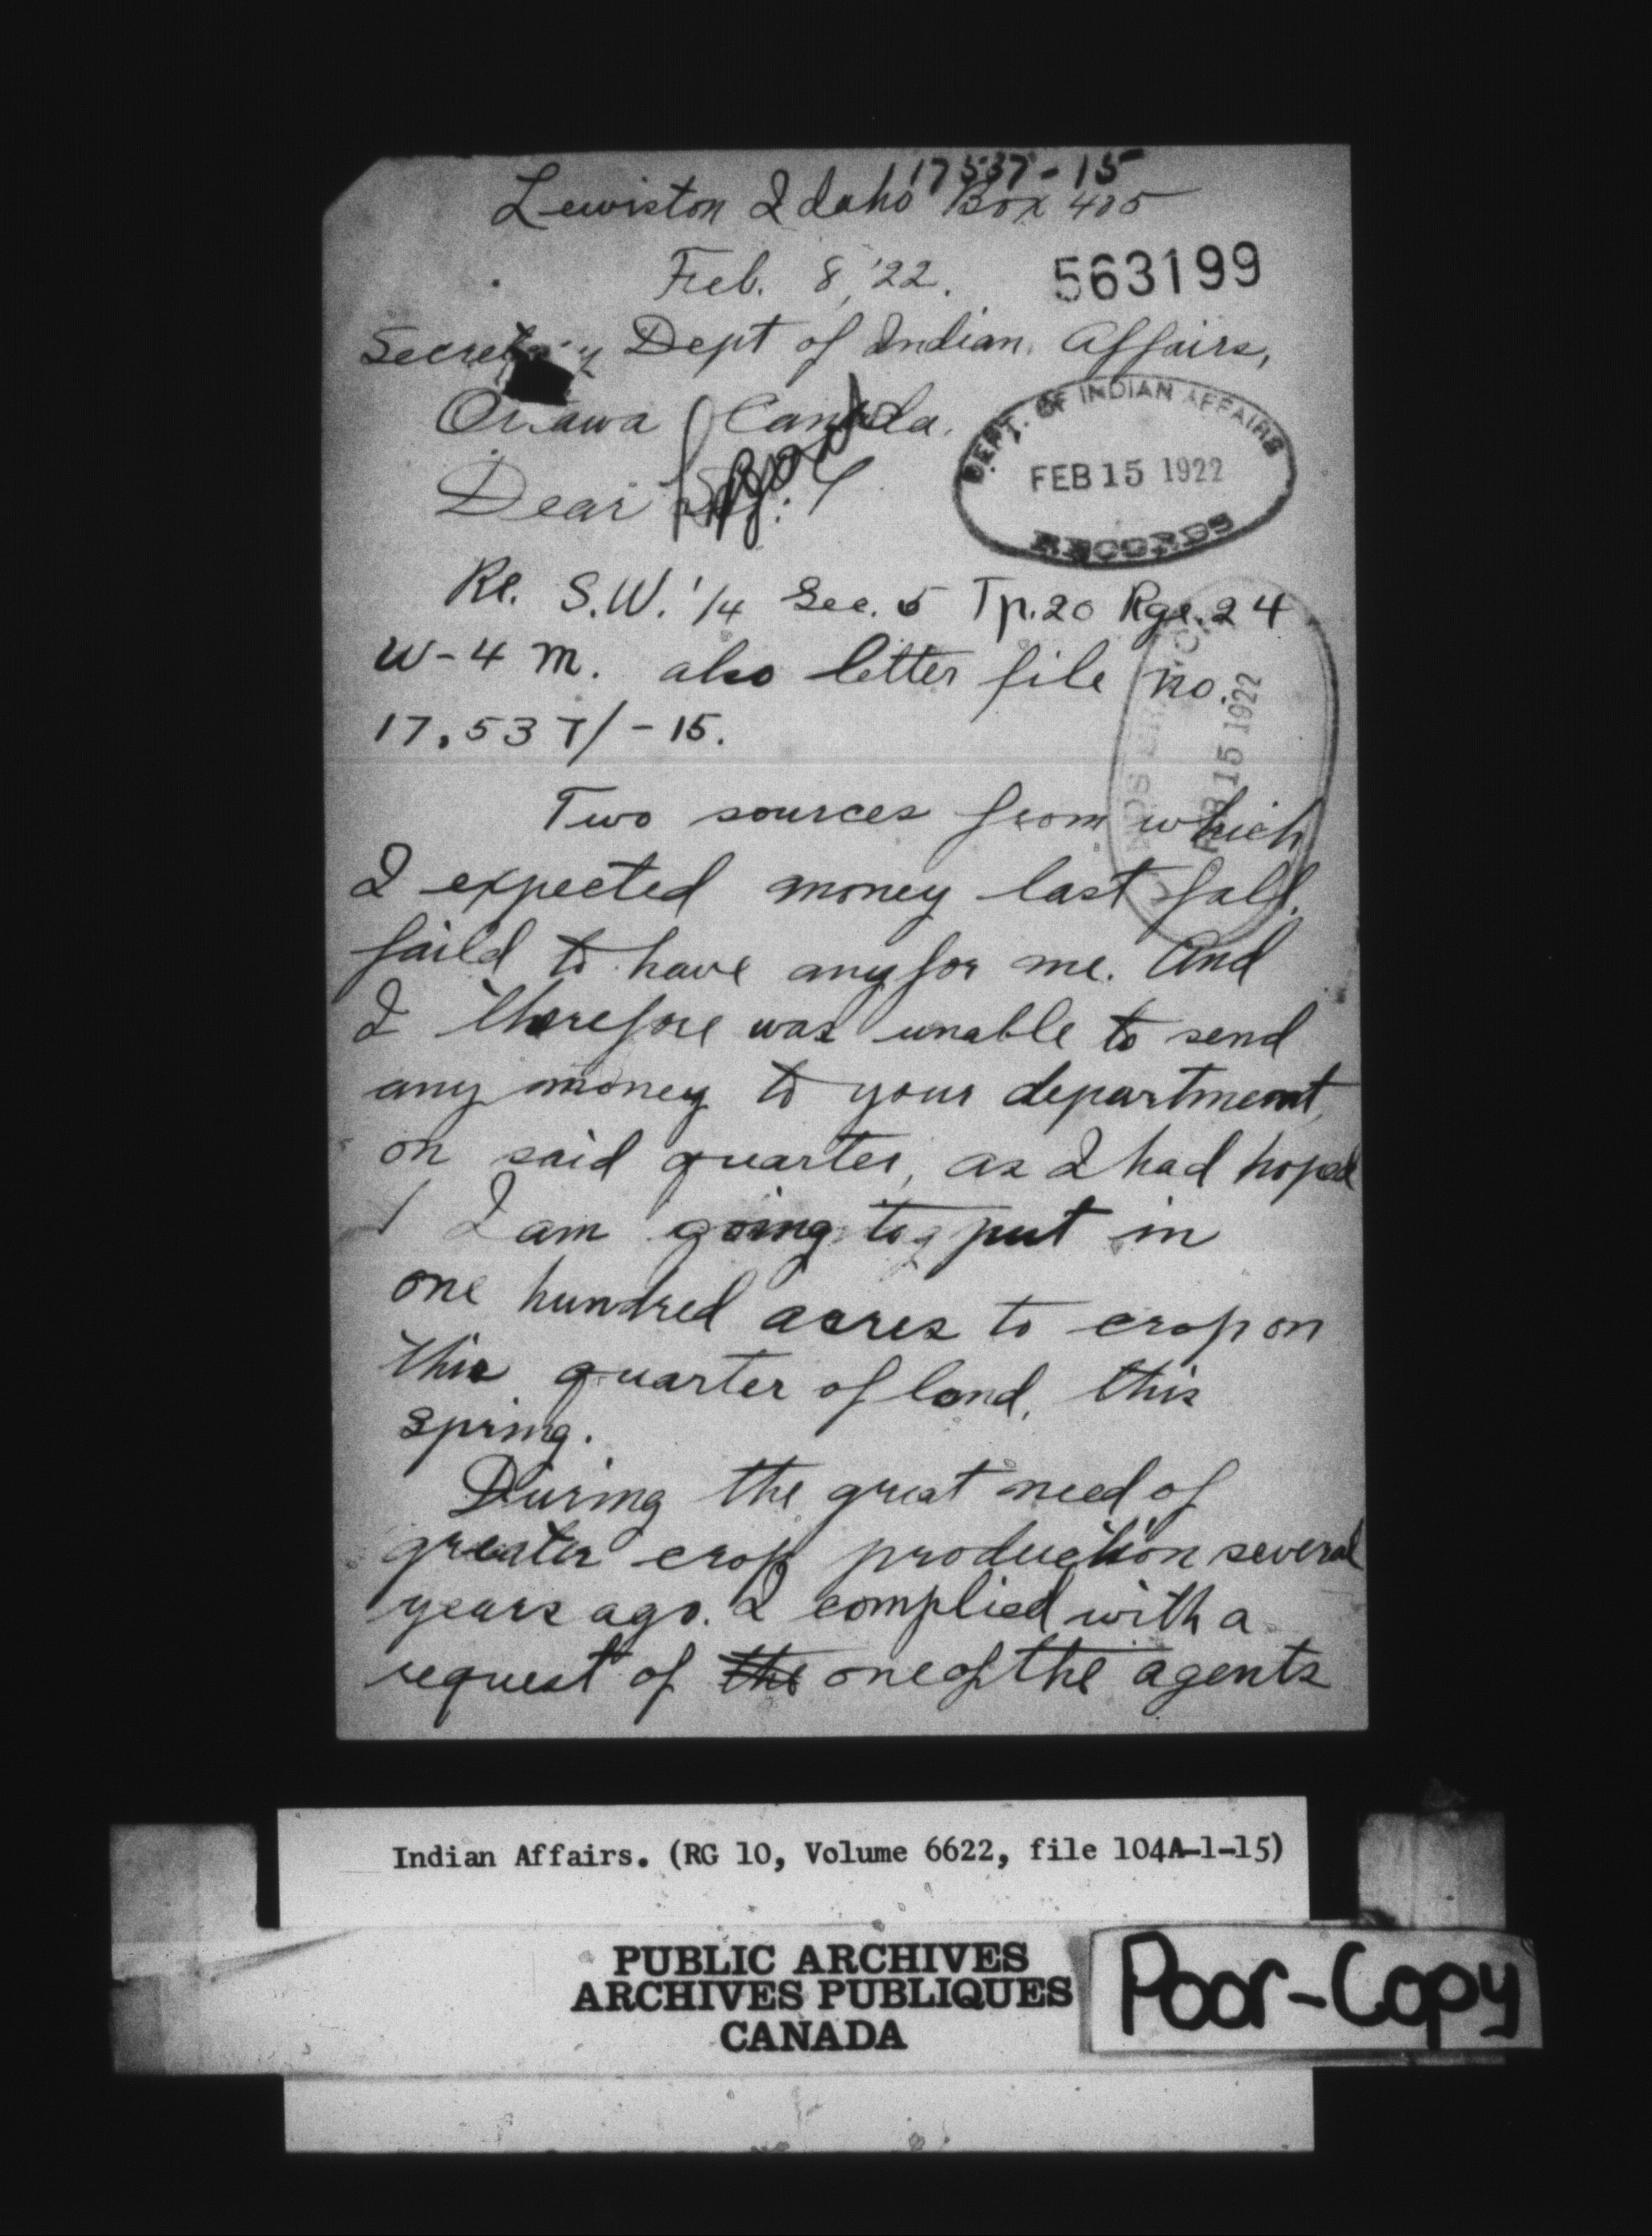 17537-15
Lewiston Idaho Box 405
Feb. 8, '22.
563199
Secretary Dept of Indian Affairs,
Ottawa Canada.
DEPT. OF INDIAN AFFAIRS
FEB 15 1922
RECORDS
Dear Sir:
Re. S.W. 1/4 Sec. 5 Tp. 20 Rge. 24
W-4 M. also letter file no.
17,537/-15.
FEB 15 1922
Two sources from which
I expected money last fall,
faild to have any for me. And
I therefore was unable to send
any money to your department,
on said quarter, as I had hoped
I am going to put in
one hundred acres to crop on
this quarter of land, this
spring.
During the great need of
greater crop production several
years ago. I complied with a
request of the one of the agents
Indian Affairs. (RG 10, Volume 6622, file 104A-1-15)
PUBLIC ARCHIVES
ARCHIVES PUBLIQUES
CANADA
Poor-Copy